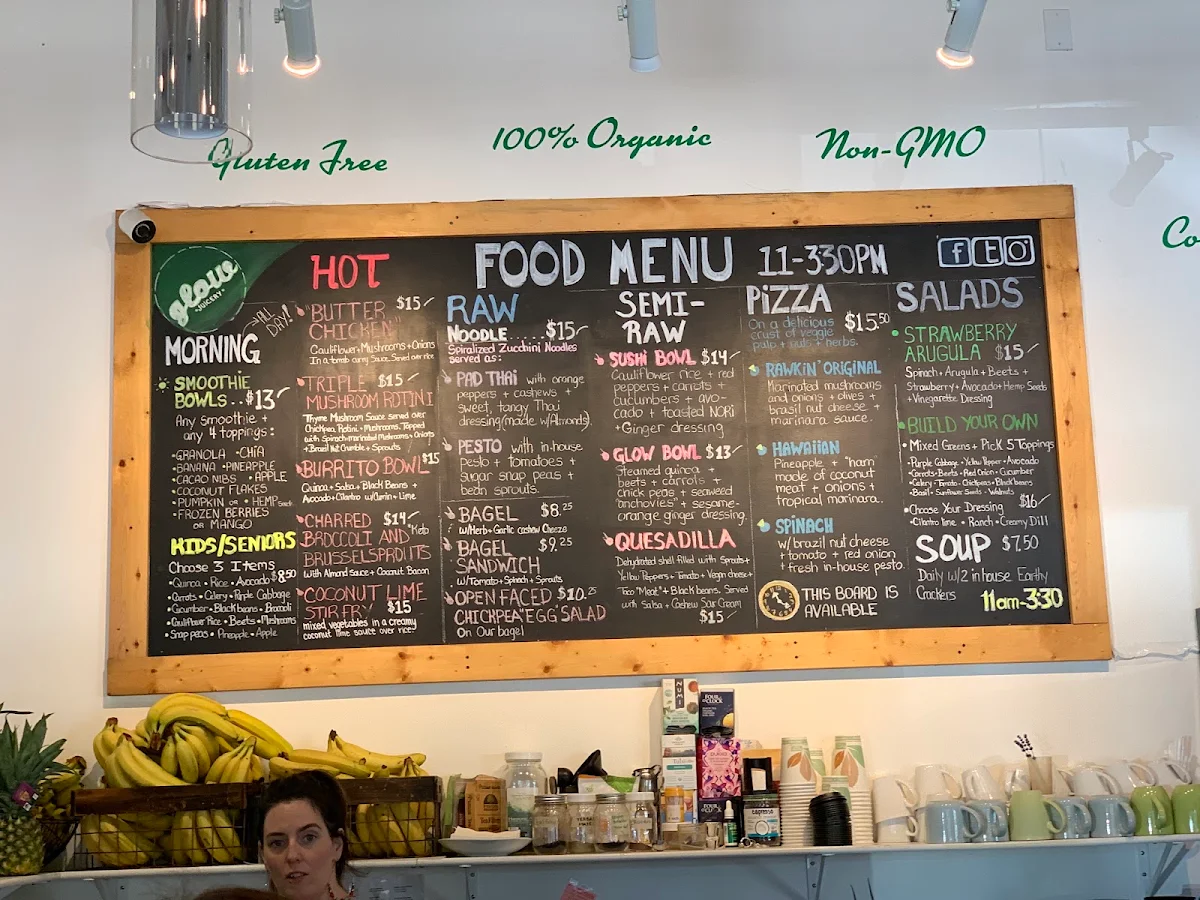 Gluten Free
100% Organic
Non-GMO
Co
glow
JUICERY
FOOD MENU
11-3:30PM
MORNING
ALL DAY!
SMOOTHIE
BOWLS.. $13
Any smoothie +
any 4 toppings:
•GRANOLA •CHIA
•BANANA •PINEAPPLE
•CACAO NIBS •APPLE
•COCONUT FLAKES
•PUMPKIN OR •HEMP
•FROZEN BERRIES
OR MANGO
KIDS/SENIORS
Choose 3 Items
$8.50
•Quinoa • Rice • Avocado
•Carrots • Celery • Purple Cabbage
•Cucumber • Black beans • Broccoli
•Cauliflower Rice • Beets • Mushrooms
•Snap peas • Pineapple • Apple
HOT
"BUTTER $15
CHICKEN"
Cauliflower + Mushrooms + Onions
In a tomato curry Sauce. Served over rice
TRIPLE $15
MUSHROOM ROTINI
Thyme Mushroom Sauce served over
Chickpea Rotini + Mushrooms. Topped
with Spinach + marinated Mushrooms + Onions
+ Brazil Nut Crumble + Sprouts
BURRITO BOWL $15
Quinoa + Salsa + Black Beans +
Avocado + Cilantro w/ Cumin + Lime
CHARRED $14
Keto
BROCCOLI AND
BRUSSELSPROUTS
with Almond sauce + Coconut Bacon
COCONUT LIME
STIR FRY $15
mixed vegetables in a creamy
coconut lime sauce over rice.
RAW
NOODLE.....$15
Spiralized Zucchini Noodles
served as:
PAD THAI with orange
peppers + cashews +
sweet, tangy Thai
dressing (made w/Almonds).
PESTO with in-house
pesto + tomatoes +
sugar snap peas +
bean sprouts.
BAGEL $8.25
w/Herb + Garlic cashew Cheeze
BAGEL $9.25
SANDWICH
w/Tomato + Spinach + Sprouts
OPEN FACED $10.25
CHICKPEA "EGG" SALAD
On Our bagel
SEMI-
RAW
SUSHI BOWL $14
Cauliflower rice + red
peppers + carrots +
cucumbers + avo-
cado + toasted NORI
+ Ginger dressing
GLOW BOWL $13
Steamed quinoa +
beets + carrots +
chick peas + seaweed
"anchovies" + sesame-
orange ginger dressing.
QUESADILLA
Dehydrated shell filled with Sprouts +
Yellow Peppers + Tomato + Vegan cheese +
Taco "Meat" + Black beans. Served
with Salsa + Cashew Sour Cream
$15
PiZZA
On a delicious $15.50
crust of veggie
pulp + nuts + herbs.
RAWKIN' ORIGINAL
Marinated mushrooms
and onions + olives +
brasil nut cheese +
marinara sauce.
HAWAIIAN
Pineapple + "ham"
made of coconut
meat + onions +
tropical marinara.
SPINACH
w/ brazil nut cheese
+ tomato + red onion
+ fresh in-house pesto.
THIS BOARD IS
AVAILABLE
SALADS
STRAWBERRY
ARUGULA $15
Spinach + Arugula + Beets +
Strawberry + Avocado + Hemp Seeds
+ Vinegarette Dressing
BUILD YOUR OWN
• Mixed Greens + Pick 5 Toppings
•Purple Cabbage •Yellow Pepper •Avocado
•Carrots •Beets •Red Onion •Cucumber
•Celery •Tomato •Chickpeas •Black beans
•Basil •Sunflower Seeds •Walnuts
$16
•Choose Your Dressing
•Cilantro lime • Ranch • Creamy Dill
SOUP $7.50
Daily w/ 2 in house Earthy
Crackers
11am-3:30
NUMI
FOUR
O'CLOCK